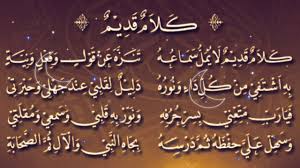 كَلَامٌ قَدِيمٌ
كَلَامٌ قَدِيمٌ لَا يُمَلُّ سَمَاعُهُ تَنَزَّهَ عَنْ قَوْلٍ وَفِعْلٍ وَنِيَّةٍ
بِهِ أَشْتَفِي مِنْ كُلِّ دَاءٍ وَنُورُهُ دَلِيلٌ لِقَلْبِي عِنْدَ جَهْلِي وَحَيْرَتِي
فَيَارَبِّ مَتِّعْنِي بِسِرِّ حُرُوفِهِ وَنَوِّرْ بِهِ قَلْبِي وَسَمْعِي وَمُقْلَتِي
وَسَهِّلْ عَلَيَّ حِفْظَهُ ثُمَّ دَرْسَهُ بِجَاهِ النَّبِيِّ وَالْآلِ ثُمَّ الصَّحَابَةِ